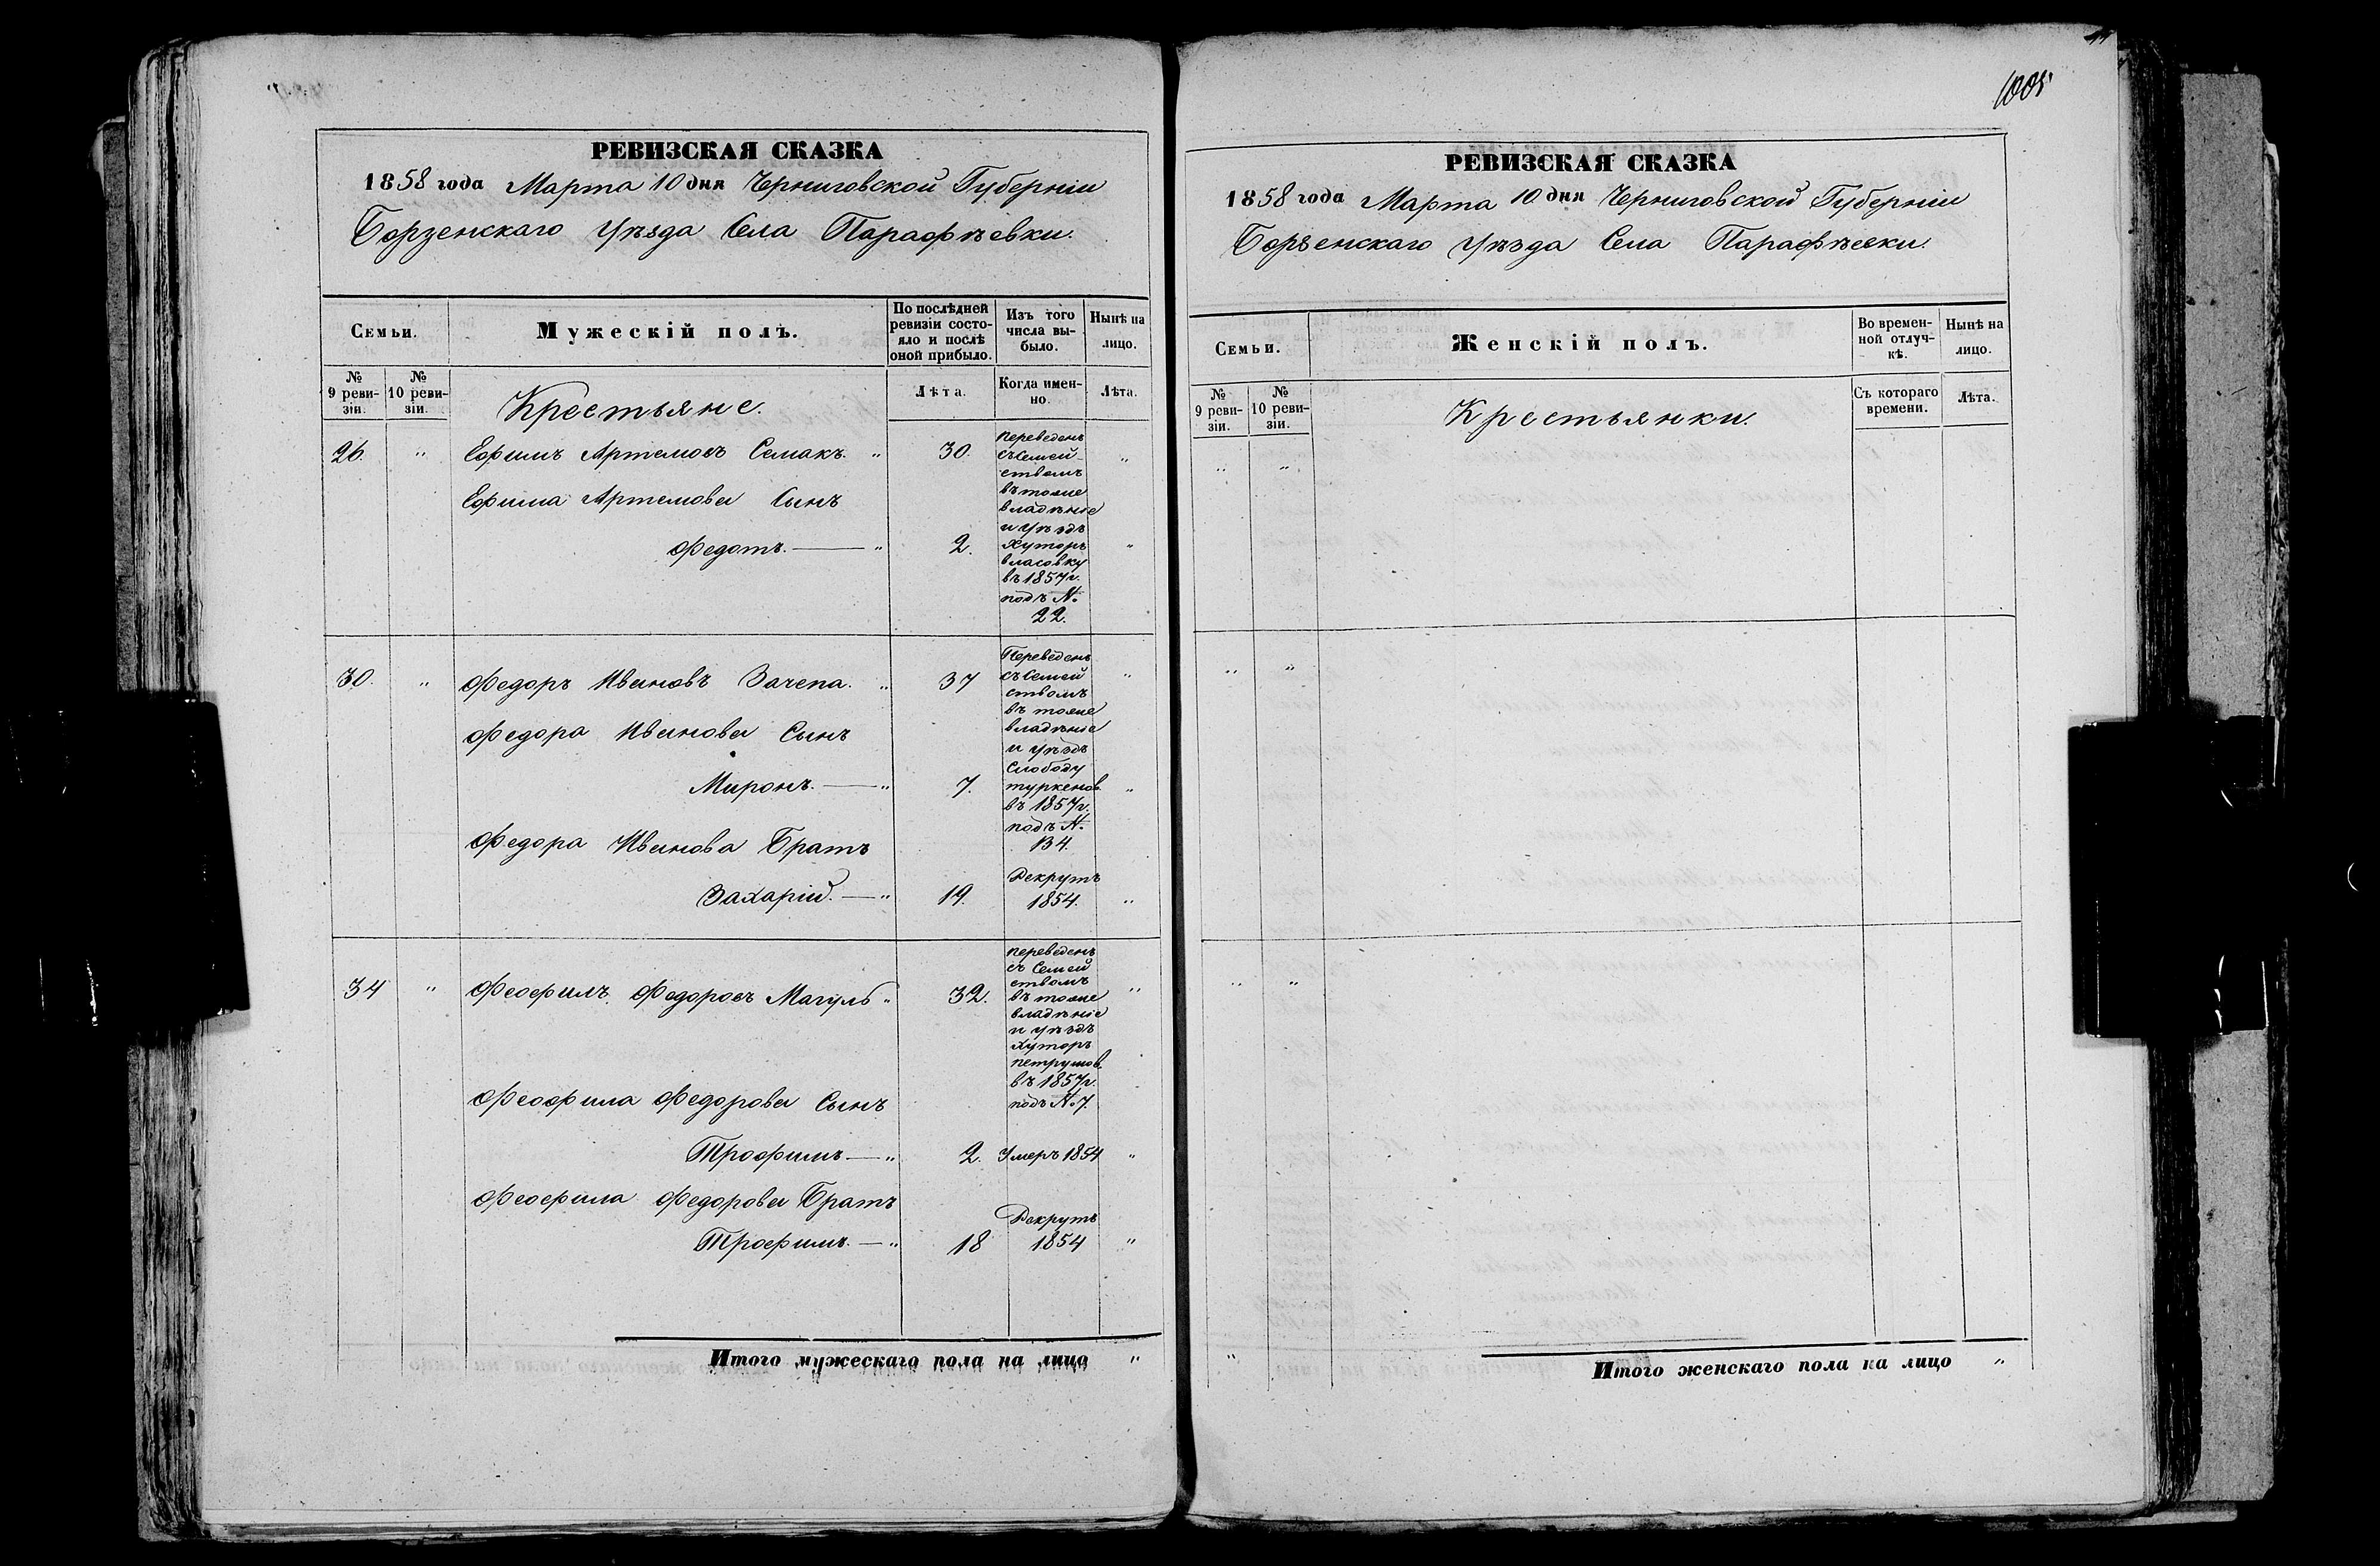 РЕВИЗСКАЯ СКАЗКА
1858 года Марта 10 дня Черниговской Губерніи
Борзенскаго Уѣзда Села Парафѣевки.
Семьи.
Мужескій полъ.
По послѣдней ревизіи состояло и послѣ оной прибыло.
Изъ того числа выбыло.
Нынѣ на лицо.
№ 9 ревизіи.
№ 10 ревизіи.
Крестьяне.
Лѣта.
Когда именно.
Лѣта.
26. " Ефимъ Артемовъ Семакъ. " 30. "
Ефима Артемова Сынъ
Федотъ. — " 2. "
переведенъ
съ Семей-
ствомъ
въ тоже
владѣніе
и уѣздъ
Хуторъ
власовку
въ 1857 г.
подъ №
22.
30. " Федоръ Ивановъ Зачепа. " 37 "
Федора Иванова Сынъ
Миронъ. — " 7. "
Переведенъ
съ Семей
ствомъ
въ тоже
владѣніе
и уѣздъ
Слободу
туркенов.
въ 1857 г.
подъ №
134.
Федора Иванова Братъ
Захарій. — " 19. Рекрутъ "
1854.
34 " Феофилъ Федоровъ Магуль " 32. "
переведенъ
съ Семей
ствомъ
въ тоже
владѣніе
и уѣздъ
Хуторъ
петрушов.
въ 1857 г.
подъ № 7.
Феофила Федорова Сынъ
Трофимъ — " 2. Умеръ 1854 "
Феофила Федорова Братъ
Трофимъ. — " 18 Рекрутъ "
1854
Итого мужескаго пола на лицо "
1005
РЕВИЗСКАЯ СКАЗКА
1858 года Марта 10 дня Черниговской Губерніи
Борзенскаго Уѣзда Села Парафѣевки.
Семьи.
Женскій полъ.
Во временной отлучкѣ.
Нынѣ на лицо.
№ 9 ревизіи.
№ 10 ревизіи.
Крестьянки.
Съ котораго времени.
Лѣта.
" "
" "
" "
" Итого женскаго пола на лицо "